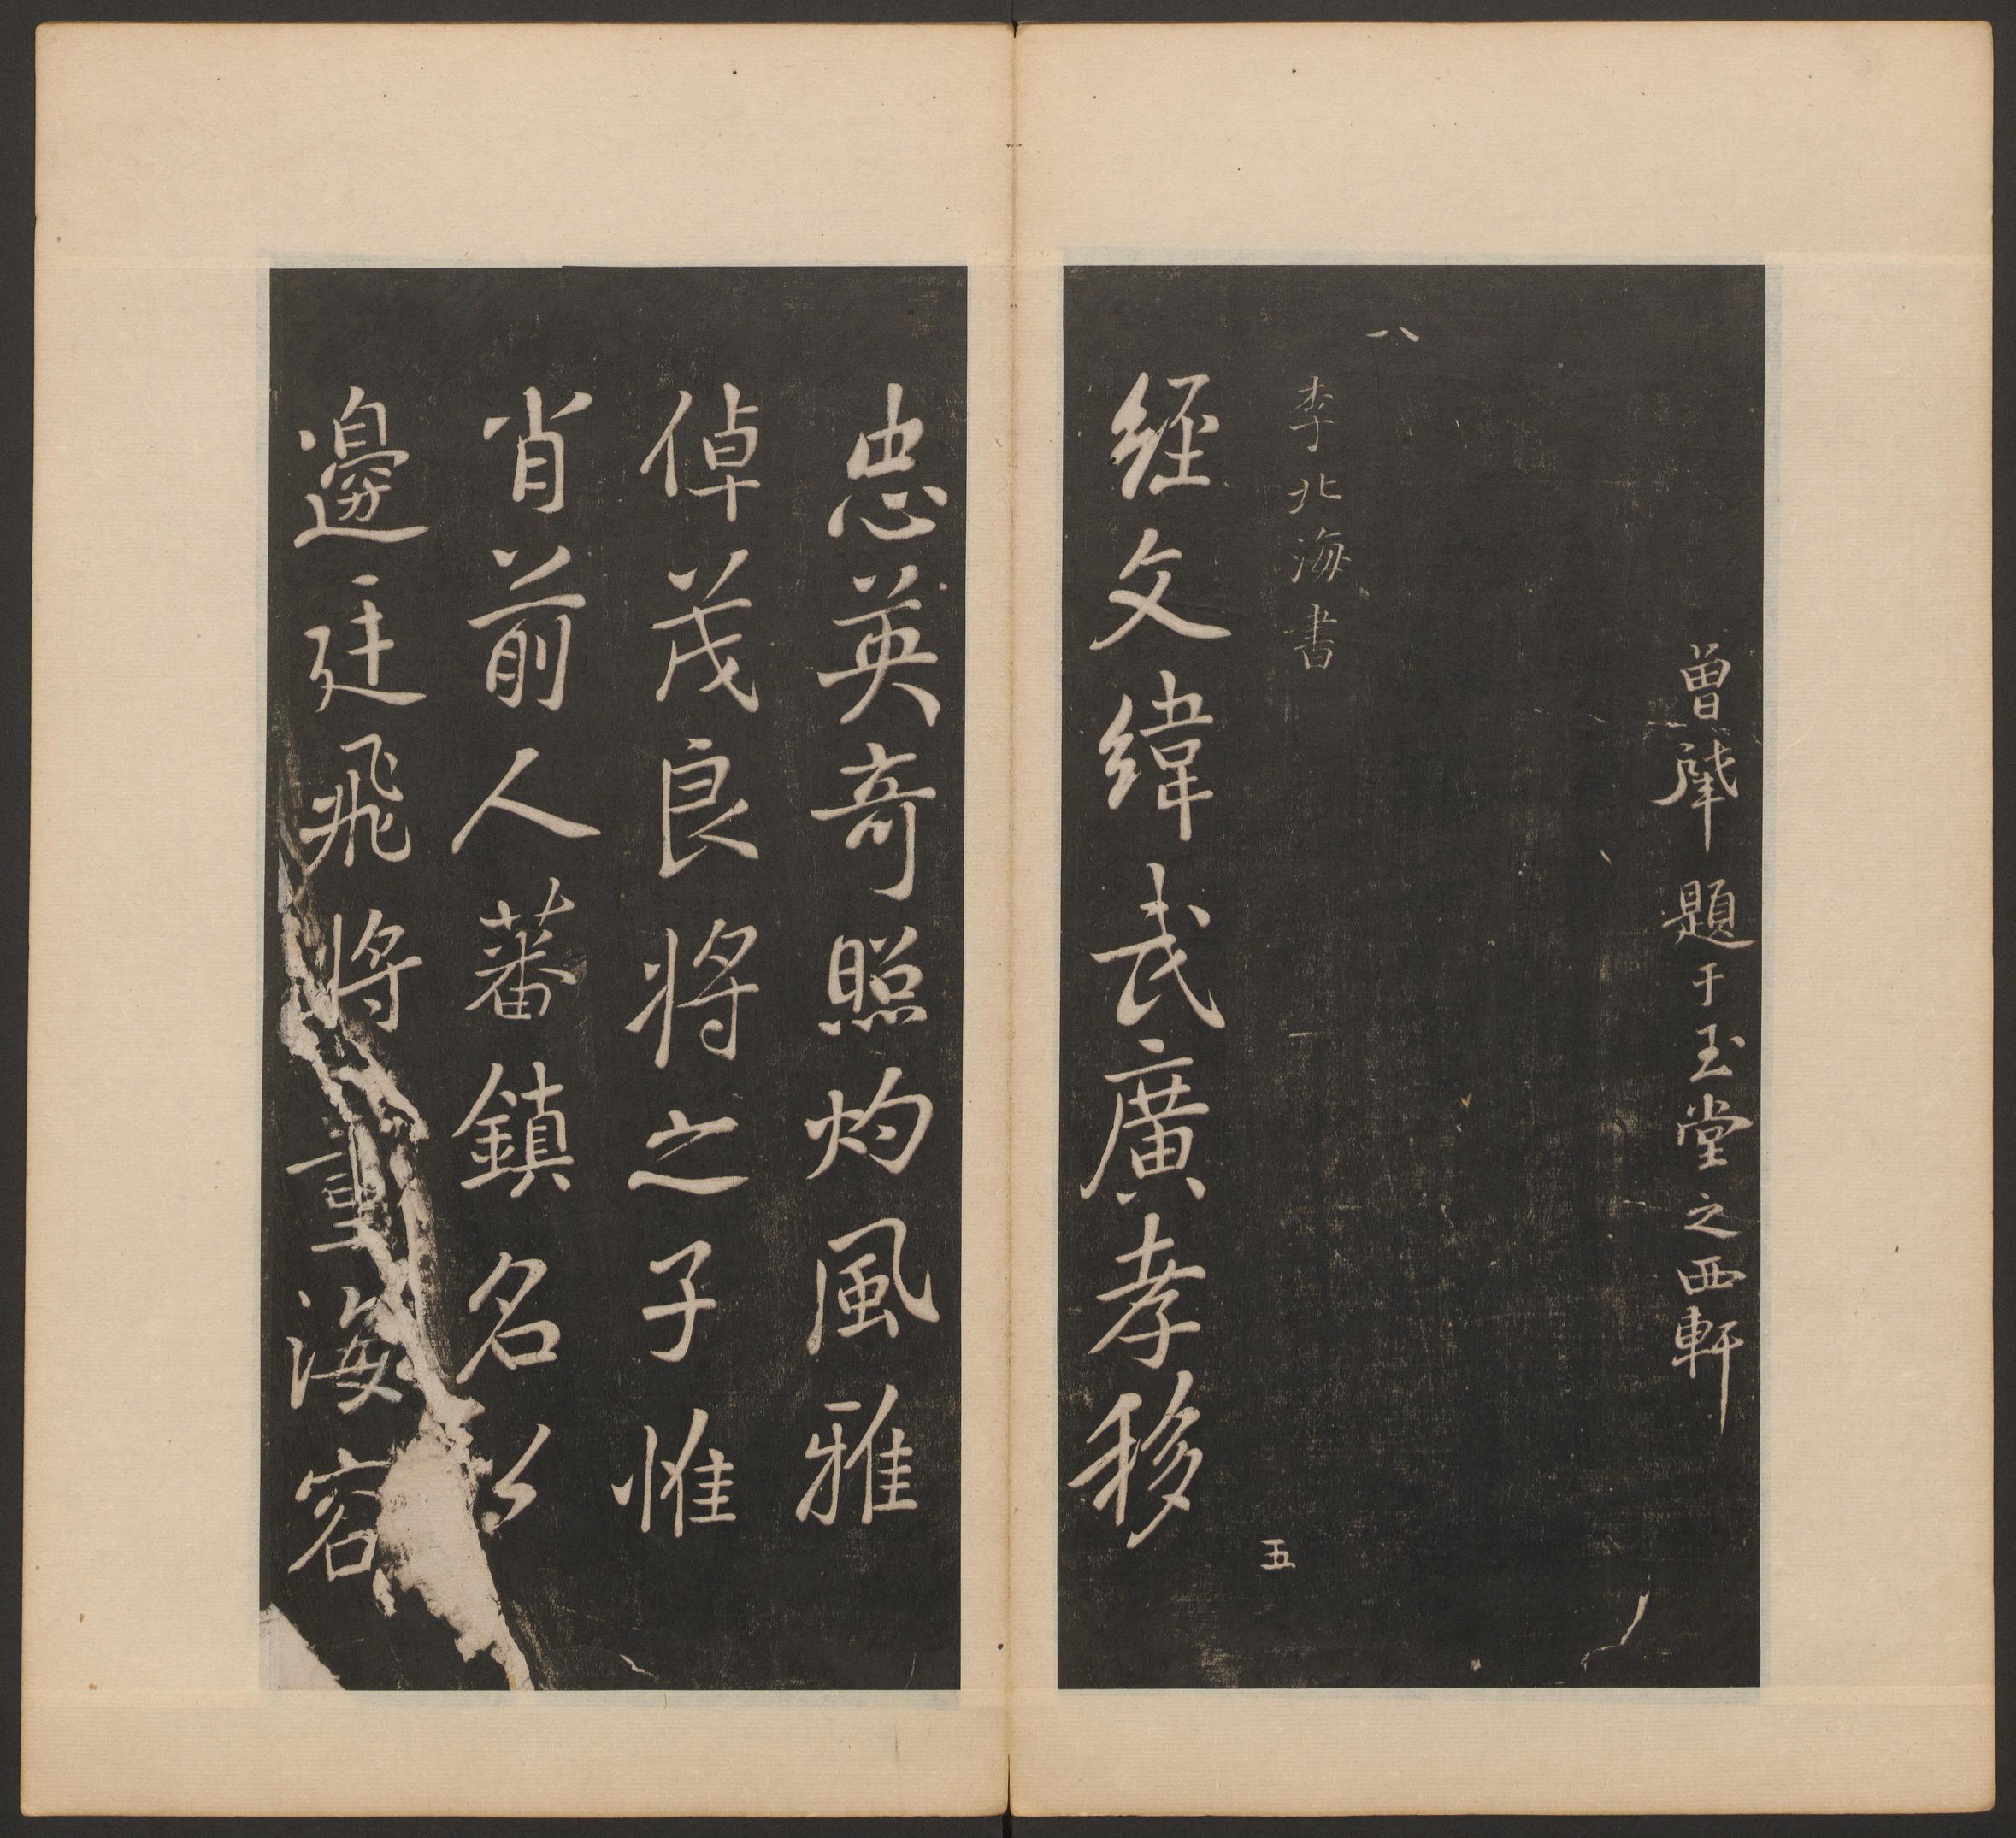 曾肇題于玉堂之西軒
八
李北海書
五
經文緯武廣孝移
忠英奇照灼風雅
倬茂良將之子惟
肖前人蕃鎮名公
邊廷飛將 重海容